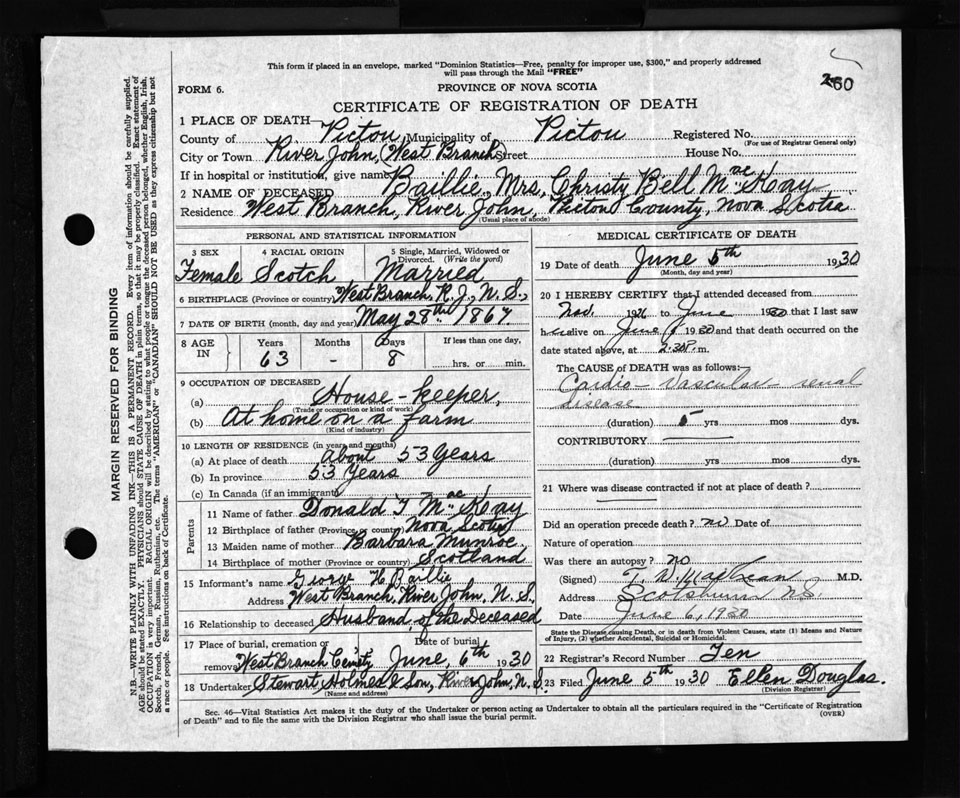 This form if placed in an envelope, marked "Dominion Statistics—Free, penalty for improper use, $300," and properly addressed
will pass through the Mail "FREE"
260
FORM 6.
PROVINCE OF NOVA SCOTIA
CERTIFICATE OF REGISTRATION OF DEATH
1 PLACE OF DEATH—
County of Pictou Municipality of Pictou Registered No.
(For use of Registrar General only)
City or Town River John, (West Branch) Street House No.
If in hospital or institution, give name
2 NAME OF DECEASED Baillie, Mrs, Christy Bell Mac Kay
Residence West Branch, River John, Pictou County, Nova Scotia
(Usual place of abode)
PERSONAL AND STATISTICAL INFORMATION
3 SEX Female
4 RACIAL ORIGIN Scotch
5 Single, Married, Widowed or Divorced. (Write the word) Married
6 BIRTHPLACE (Province or country) West Branch, R. J., N. S.,
7 DATE OF BIRTH (month, day and year) May 28th 1867.
8 AGE IN
Years Months Days If less than one day,
63 - 8 hrs. or min.
9 OCCUPATION OF DECEASED
(a) House-keeper,
(Trade or occupation or kind of work)
(b) At home on a farm
(Kind of industry)
10 LENGTH OF RESIDENCE (in years and months)
(a) At place of death About 53 Years
(b) In province 53 Years
(c) In Canada (if an immigrant)
Parents
11 Name of father Donald F. Mac Kay
12 Birthplace of father (Province or country) Nova Scotia
13 Maiden name of mother Barbara Munroe
14 Birthplace of mother (Province or country) Scotland
15 Informant's name George H. Baillie
Address West Branch, River John, N. S.,
16 Relationship to deceased Husband of the Deceased
17 Place of burial, cremation or removal West Branch Cem'ty
Date of burial June, 6th 1930
18 Undertaker Stewart Holmes & Son, River John, N. S.
(Name and address)
MEDICAL CERTIFICATE OF DEATH
19 Date of death June 5th 1930
(Month, day and year)
20 I HEREBY CERTIFY that I attended deceased from
Nov. 1926 to June 1930 that I last saw
h alive on June 1930 and that death occurred on
date stated above, at 2.30 P. m.
The CAUSE of DEATH was as follows:—
Cardio-vascular-renal
disease
(duration) 5 yrs mos dys.
CONTRIBUTORY
(duration) yrs mos dys.
21 Where was disease contracted if not at place of death?
Did an operation precede death? no Date of
Nature of operation
Was there an autopsy? no
(Signed) T. W. MacLean M.D.
Address Scotsburn N.S.
Date June 6, 1930
State the Disease causing Death, or in death from Violent Causes, state (1) Means and Nature
of Injury, (2) whether Accidental, Suicidal or Homicidal.
22 Registrar's Record Number Ten
23 Filed June 5th 1930 Ellen Douglas.
(Division Registrar)
Sec. 46—Vital Statistics Act makes it the duty of the Undertaker or person acting as Undertaker to obtain all the particulars required in the "Certificate of Registration
of Death" and to file the same with the Division Registrar who shall issue the burial permit.
(OVER)
MARGIN RESERVED FOR BINDING
N.B.—WRITE PLAINLY WITH UNFADING INK—THIS IS A PERMANENT RECORD. Every item of information should be carefully supplied.
AGE should be stated EXACTLY. PHYSICIANS should STATE CAUSE OF DEATH in plain terms, so that it may be properly classified. Exact statement of
OCCUPATION is very important. RACIAL ORIGIN will be described by stating to what people or tongue the deceased person belonged, whether English, Irish,
Scotch, French, German, Russian, Ruthenian, etc. The terms "AMERICAN" or "CANADIAN" SHOULD NOT BE USED as they express citizenship but not
a race or people. See instructions on back of Certificate.